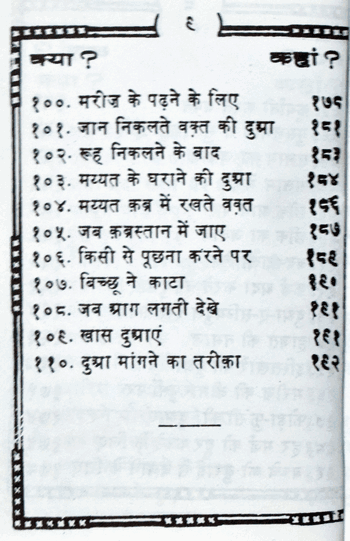 ९
क्या ? कहां ?
१००. मरीज के पढ़ने के लिए १७८
१०१. जान निकलते वक़्त की दुआ १८१
१०२. रूह निकलने के बाद १८३
१०३. मय्यत के घराने की दुआ १८४
१०४. मय्यत क़ब्र में रखते वक़्त १८६
१०५. जब क़ब्रस्तान में जाए १८७
१०६. किसी से पूछना करने पर १८९
१०७. बिच्छू ने काटा १९०
१०८. जब आग लगती देखे १९१
१०९. खास दुआएं १९१
११०. दुआ मांगने का तरीका १९२